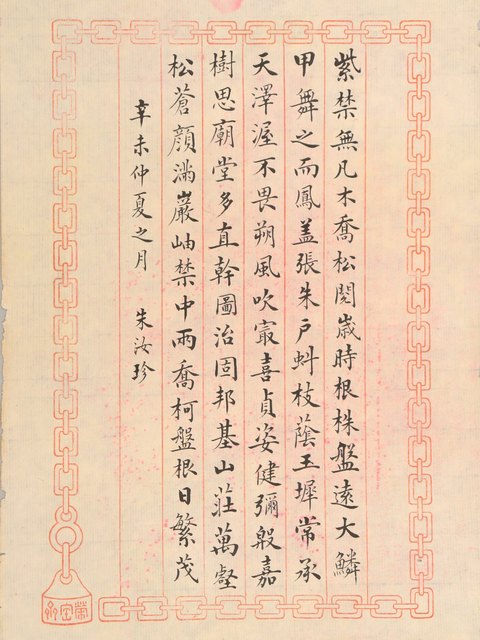 紫禁無凡木喬松閱歲時根株盤遠大鱗
甲舞之而鳳蓋張朱戶虯枝蔭玉墀常承
天澤渥不畏朔風吹㝡喜貞姿健彌殷嘉
樹思廟堂多直幹圖治固邦基山莊萬壑
松蒼顏滿巖岫禁中兩喬柯盤根日繁茂
辛未仲夏之月 朱汝珍